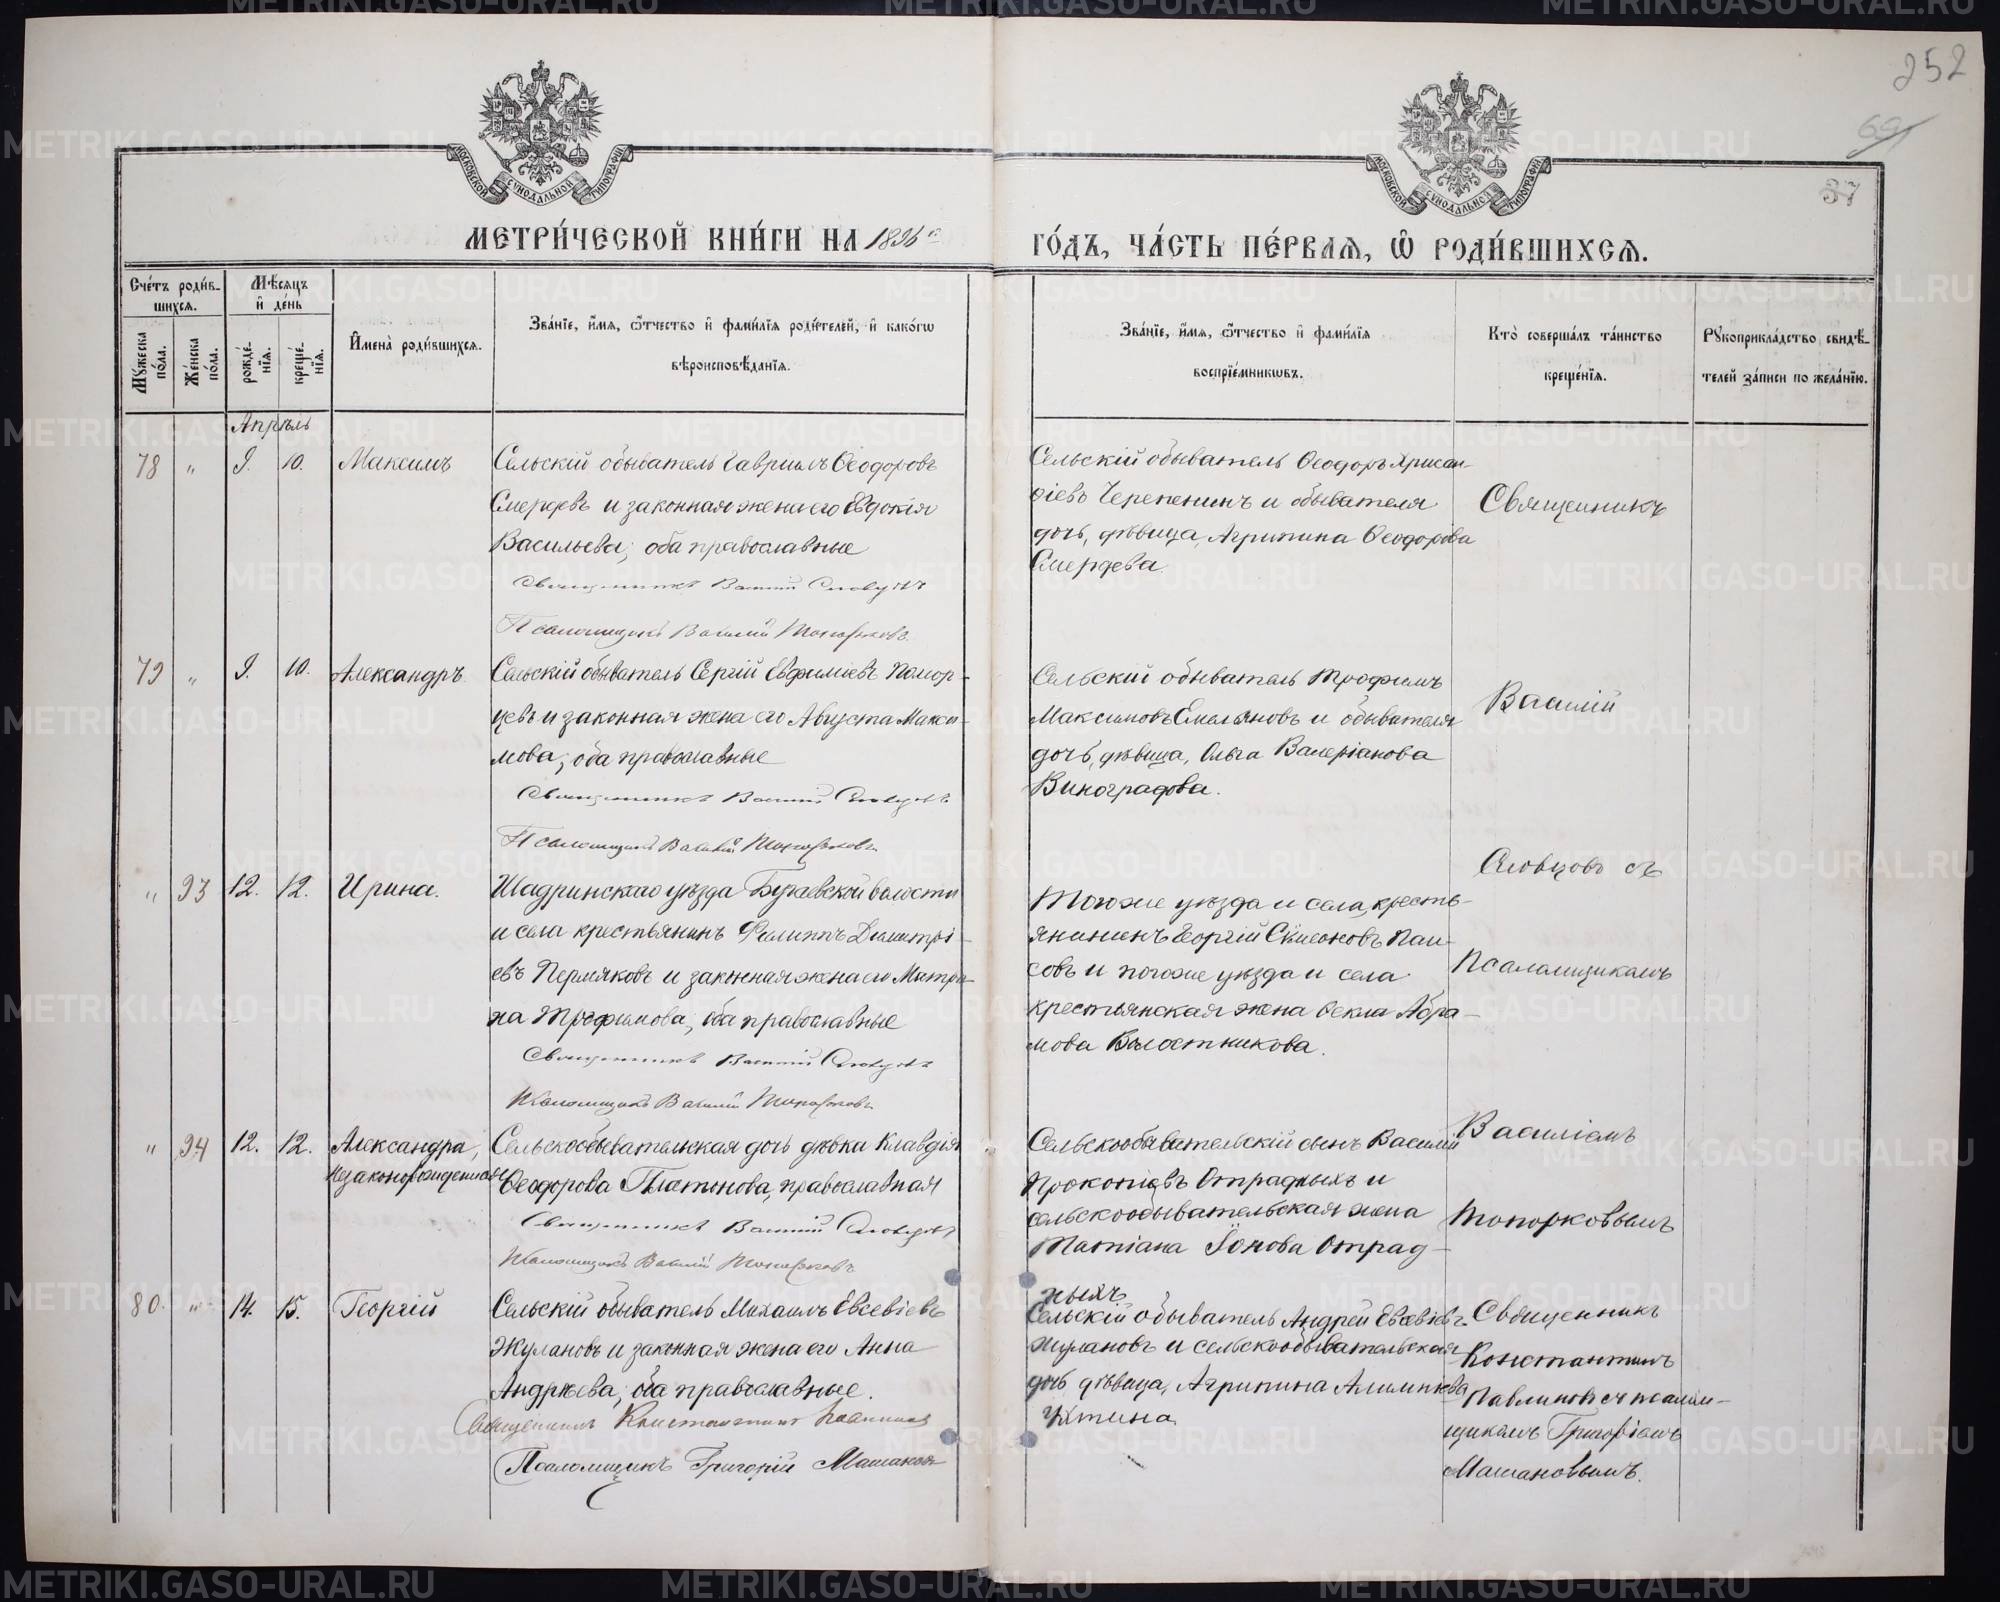 252
69
37
МОСКОВСКОЙ СѴНОДАЛЬНОЙ ТИПОГРАФІИ
МОСКОВСКОЙ СѴНОДАЛЬНОЙ ТИПОГРАФІИ
МЕТРИ́ЧЕСКОЙ КНИ́ГИ НА 1896 й
ГО́ДЪ, ЧА́СТЬ ПЕ́РВАЯ, Ѿ РОДИ́ВШИХСЯ.
Сче́тъ роди́в-
шихся.
Мѣ́сяцъ
и҆ де́нь
Мꙋ́жеска по́ла.
Же́нска по́ла.
рожде́-
нїя.
креще́-
нїя.
И҆мена̀ роди́вшихся.
Зва́нїе, и҆́мя, ѻ҆́тчество и҆ фами́лїя роди́телей, и҆ како́гѡ
вѣроисповѣ́данїя.
Зва́нїе, и҆́мя, ѻ҆́тчество и҆ фами́лїя
воспрїе́мникѡвъ.
Кто̀ соверша́лъ та́инство
креще́нїя.
Рꙋкоприкла́дство свидѣ́-
телей за́писи по жела́нїю.
Апрѣль
78 " 9. 10. Максимъ
Сельскій обыватель Гавріилъ Ѳеодоровъ
Смердевъ и законная жена его Евдокія
Васильева; оба православные
Священникъ Василій Словцовъ
Псаломщикъ Василій Топорковъ
Сельскій обыватель Ѳеодоръ Хрисан-
ѳіевъ Черепенинъ и обывателя
дочь, дѣвица, Агрипина Ѳеодорова
Смердева
Священникъ
79 " 9. 10. Александръ
Сельскій обыватель Сергій Евфиміевъ Помор-
цевъ и законная жена его Августа Макси-
мова; оба православные
Священникъ Василій Словцовъ
Псаломщикъ Василій Топорковъ
Сельскій обыватель Трофимъ
Максимовъ Емельяновъ и обывателя
дочь, дѣвица, Ольга Валеріанова
Виноградова.
Василій
" 93 12. 12. Ирина.
Шадринскаго уѣзда Бугаевской волости
и села крестьянинъ Филиппъ Димитрі-
евъ Пермяковъ и законная жена его Матро-
на Трофимова; оба православные
Священникъ Василій Словцовъ
Псаломщикъ Василій Топорковъ
Тогоже уѣзда и села, кресть-
янинъ Георгій Симоновъ
и тогоже уѣзда и села
крестьянская жена Ѳекла Абра-
мова Волостникова.
Словцовъ съ
Псаломщикомъ
" 94 12. 12. Александра,
незаконорожденная
Сельскообывательская дочь дѣвка Клавдія
Ѳеодорова Платонова, православная
Священникъ Василій Словцовъ
Псаломщикъ Василій Топорковъ
Сельскообывательскій сынъ Василій
Прокопіевъ Отрадныхъ и
сельскообывательская жена
Татіана Іонова Отрад-
ныхъ
Василіемъ
Топорковымъ
80. " 14. 15. Георгій
Сельскій обыватель Михаилъ Евсевіевъ
Жулановъ и законная жена его Анна
Андреева; оба православные.
Священникъ Константинъ
Псаломщикъ Григорій Машановъ
Сельскій обыватель Андрей Евсевіевъ
Жулановъ и сельскообывательская
дочь дѣвица, Агрипина Алимпіева
Устина
Священникъ
Константинъ
Павлиновъ съ псалом-
щикомъ Григоріемъ
Машановымъ.
METRIKI.GASO-URAL.RU